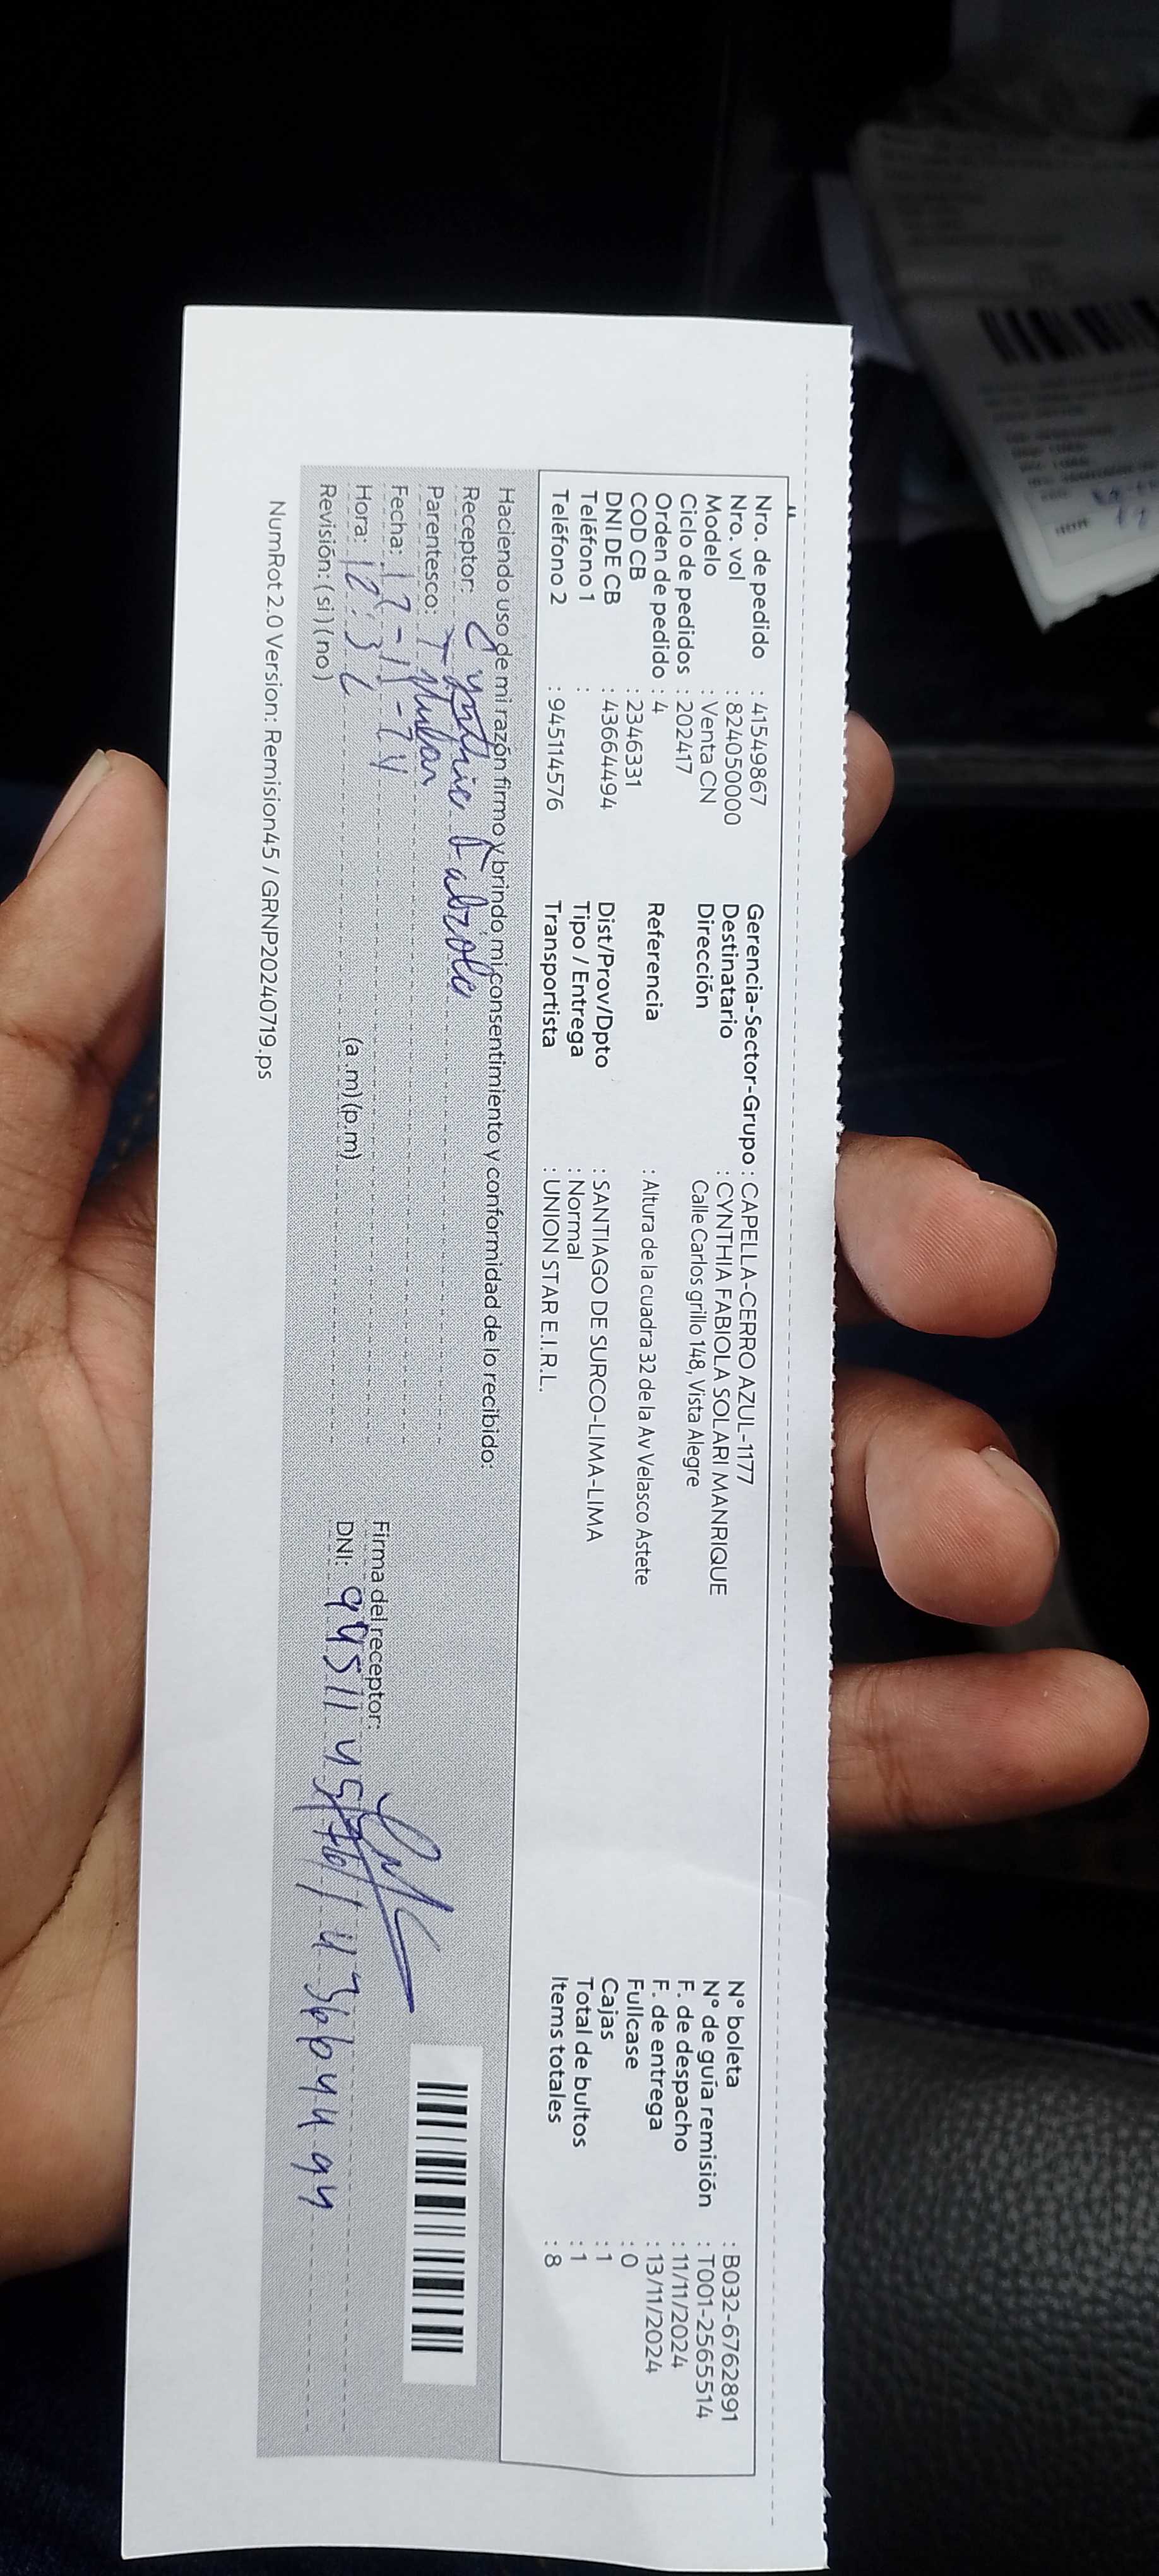 Nro. de pedido : 41549867
Nro. vol : 8240500000
Modelo : Venta CN
Ciclo de pedidos : 202417
Orden de pedido : 4
COD CB : 2346331
DNI DE CB : 43664494
Teléfono 1 :
Teléfono 2 : 945114576
Gerencia-Sector-Grupo : CAPELLA-CERRO AZUL-1177
Destinatario : CYNTHIA FABIOLA SOLARI MANRIQUE
Dirección Calle Carlos grillo 148, Vista Alegre
Referencia : Altura de la cuadra 32 de la Av Velasco Astete
Dist/Prov/Dpto : SANTIAGO DE SURCO-LIMA-LIMA
Tipo / Entrega : Normal
Transportista : UNION STAR E.I.R.L.
N° boleta : B032-6762891
N° de guía remisión : T001-2565514
F. de despacho : 11/11/2024
F. de entrega : 13/11/2024
Fullcase : 0
Cajas : 1
Total de bultos : 1
Items totales : 8
Haciendo uso de mi razón firmo y brindo mi consentimiento y conformidad de lo recibido:
Receptor: Cynthia Fabiola
Parentesco: Titular
Fecha:
Hora: (a.m)(p.m)
Revisión: (si)(no)
Firma del receptor:
DNI: 945114576 / 43664494
NumRot 2.0 Version: Remision45 / GRNP20240719.ps